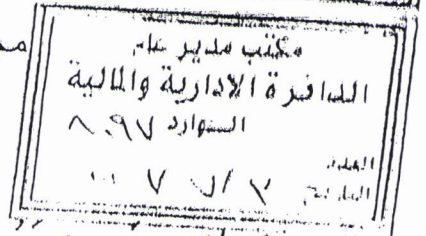 مكتب مدير عام
الدائرة الادارية والمالية
الوارد ٨٠٩٧
العدد
التاريخ ٧ / ٧